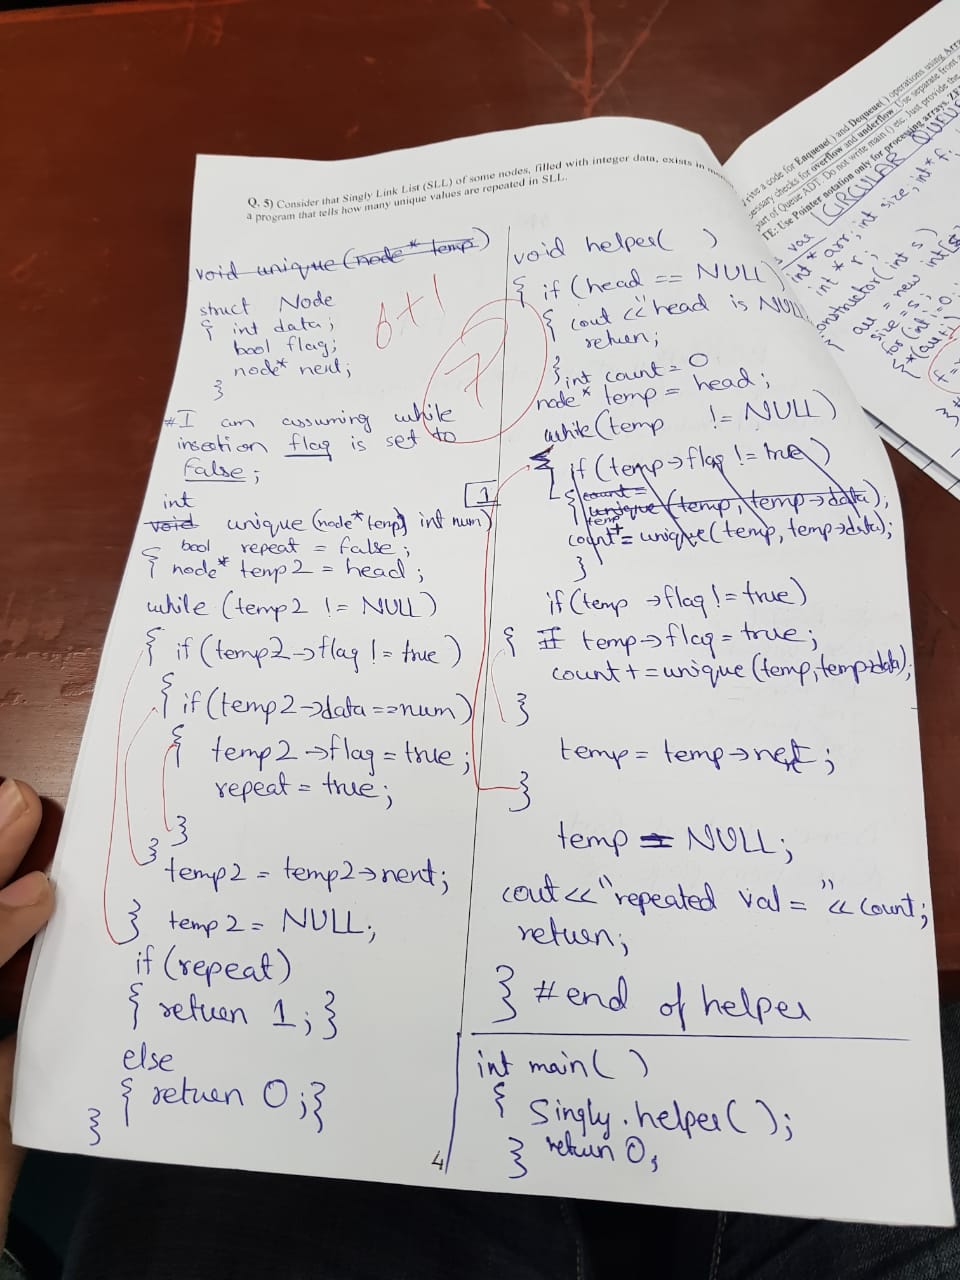 Q. 5) Consider that Singly Link List (SLL) of some nodes, filled with integer data, exists in
a program that tells how many unique values are repeated in SLL.
void unique (node* temp)
struct Node
{ int data;
bool flag;
node* next;
}
6+1
7
#I am assuming while
insertion flag is set to
false;
int
void unique (node* temp, int num)
1
bool repeat = false;
{ node* temp2 = head;
while (temp2 != NULL)
{ if (temp2->flag != true)
{ if (temp2->data == num)
{ temp2->flag = true;
repeat = true;
}
}
temp2 = temp2->next;
} temp2 = NULL;
if (repeat)
{ return 1; }
else
{ return 0; }
}
4
void helper( )
{ if (head == NULL)
{ cout << "head is NULL
return;
} int count = 0
node* temp = head;
while (temp != NULL)
{ if (temp->flag != true)
{ count =
unique (temp, temp->data);
temp
count += unique (temp, temp->data);
}
if (temp->flag != true)
{ If temp->flag = true;
count += unique (temp, temp->data);
}
temp = temp->next;
}
temp = NULL;
cout << "repeated val = " << count;
return;
} #end of helper
int main( )
{ Singly.helper( );
} return 0;
rite a code for Enqueue( ) and Dequeue( ) operations using
essary checks for overflow and underflow. Use separate front
part of Queue ADT. Do not write main () etc. Just provide the
TE: Use Pointer notation only for processing arrays.
CIRCULAR
var
int * arr; int size; int* f;
int * r;
onstructor( int s)
arr = new int
size = s;
for (int i = 0